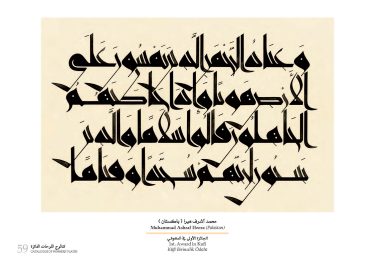 وعباد الرحمن الذين يمشون على
الأرض هونا وإذا خاطبهم
الجاهلون قالوا سلاما والذين
يبيتون لربهم سجدا وقياما
محمد أشرف هيرا ( باكستان )
Muhammad Ashraf Heera (Pakistan)
الجائزة الأولى في الكوفي
1st. Award in Kufi
Kûfi Birincilik Ödülü
59
كتالوج اللوحات الفائزة